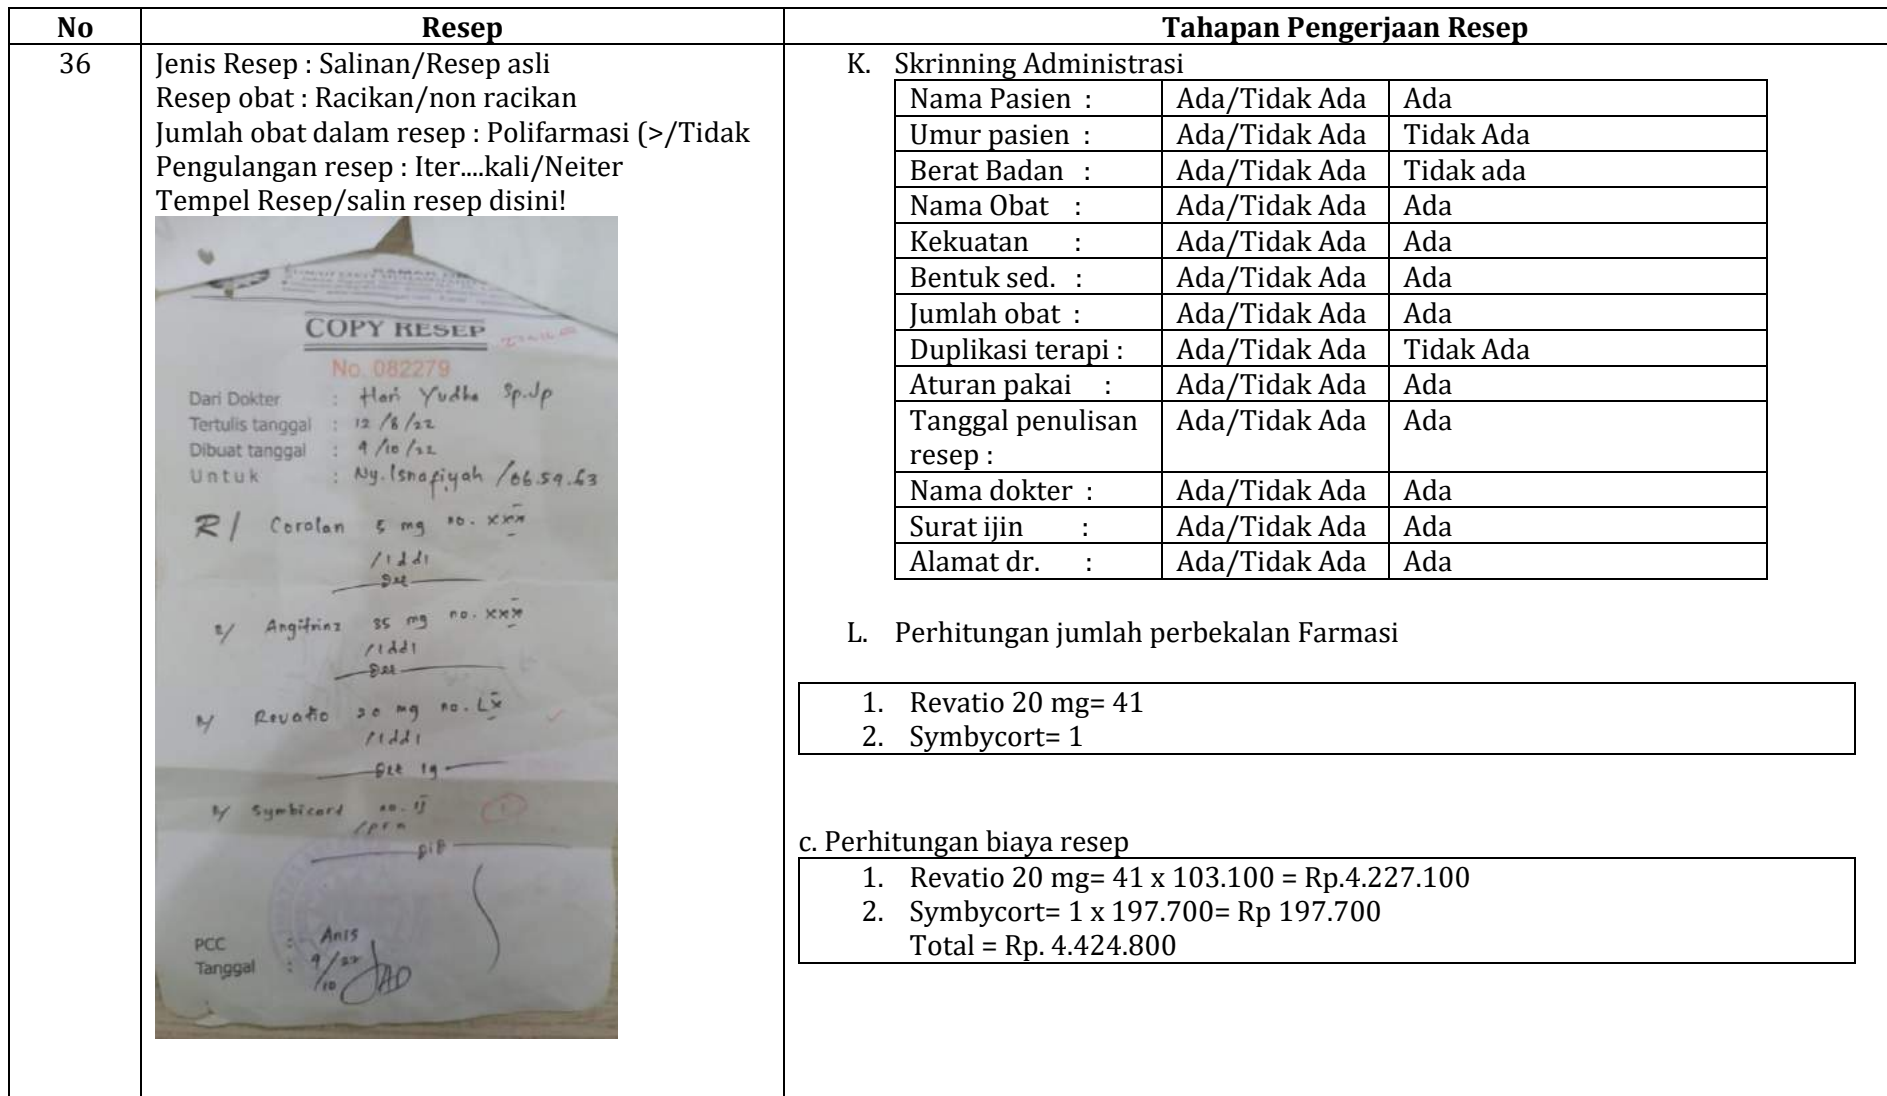 No Resep Tahapan Pengerjaan Resep
36
Jenis Resep : Salinan/Resep asli
Resep obat : Racikan/non racikan
Jumlah obat dalam resep : Polifarmasi (>/Tidak
Pengulangan resep : Iter....kali/Neiter
Tempel Resep/salin resep disini!
COPY RESEP
No. 082279
Dari Dokter : Hari Yudha Sp.Jp
Tertulis tanggal : 12 /8/22
Dibuat tanggal : 9/10/22
Untuk : Ny. Isnafiyah /06.59.63
R/ Corolan 5 mg no. xxx
/1dd1
Det
R/ Angitrinz 35 mg no. xxx
/1dd1
Det
R/ Revatio 20 mg no. LX
/1dd1
Det 19
R/ Symbicord no. ij
/prn
PCC : Anis
Tanggal : 9/10 22
K. Skrinning Administrasi
Nama Pasien : Ada/Tidak Ada Ada
Umur pasien : Ada/Tidak Ada Tidak Ada
Berat Badan : Ada/Tidak Ada Tidak ada
Nama Obat : Ada/Tidak Ada Ada
Kekuatan : Ada/Tidak Ada Ada
Bentuk sed. : Ada/Tidak Ada Ada
Jumlah obat : Ada/Tidak Ada Ada
Duplikasi terapi : Ada/Tidak Ada Tidak Ada
Aturan pakai : Ada/Tidak Ada Ada
Tanggal penulisan Ada/Tidak Ada Ada
resep :
Nama dokter : Ada/Tidak Ada Ada
Surat ijin : Ada/Tidak Ada Ada
Alamat dr. : Ada/Tidak Ada Ada
L. Perhitungan jumlah perbekalan Farmasi
1. Revatio 20 mg= 41
2. Symbycort= 1
c. Perhitungan biaya resep
1. Revatio 20 mg= 41 x 103.100 = Rp.4.227.100
2. Symbycort= 1 x 197.700= Rp 197.700
Total = Rp. 4.424.800